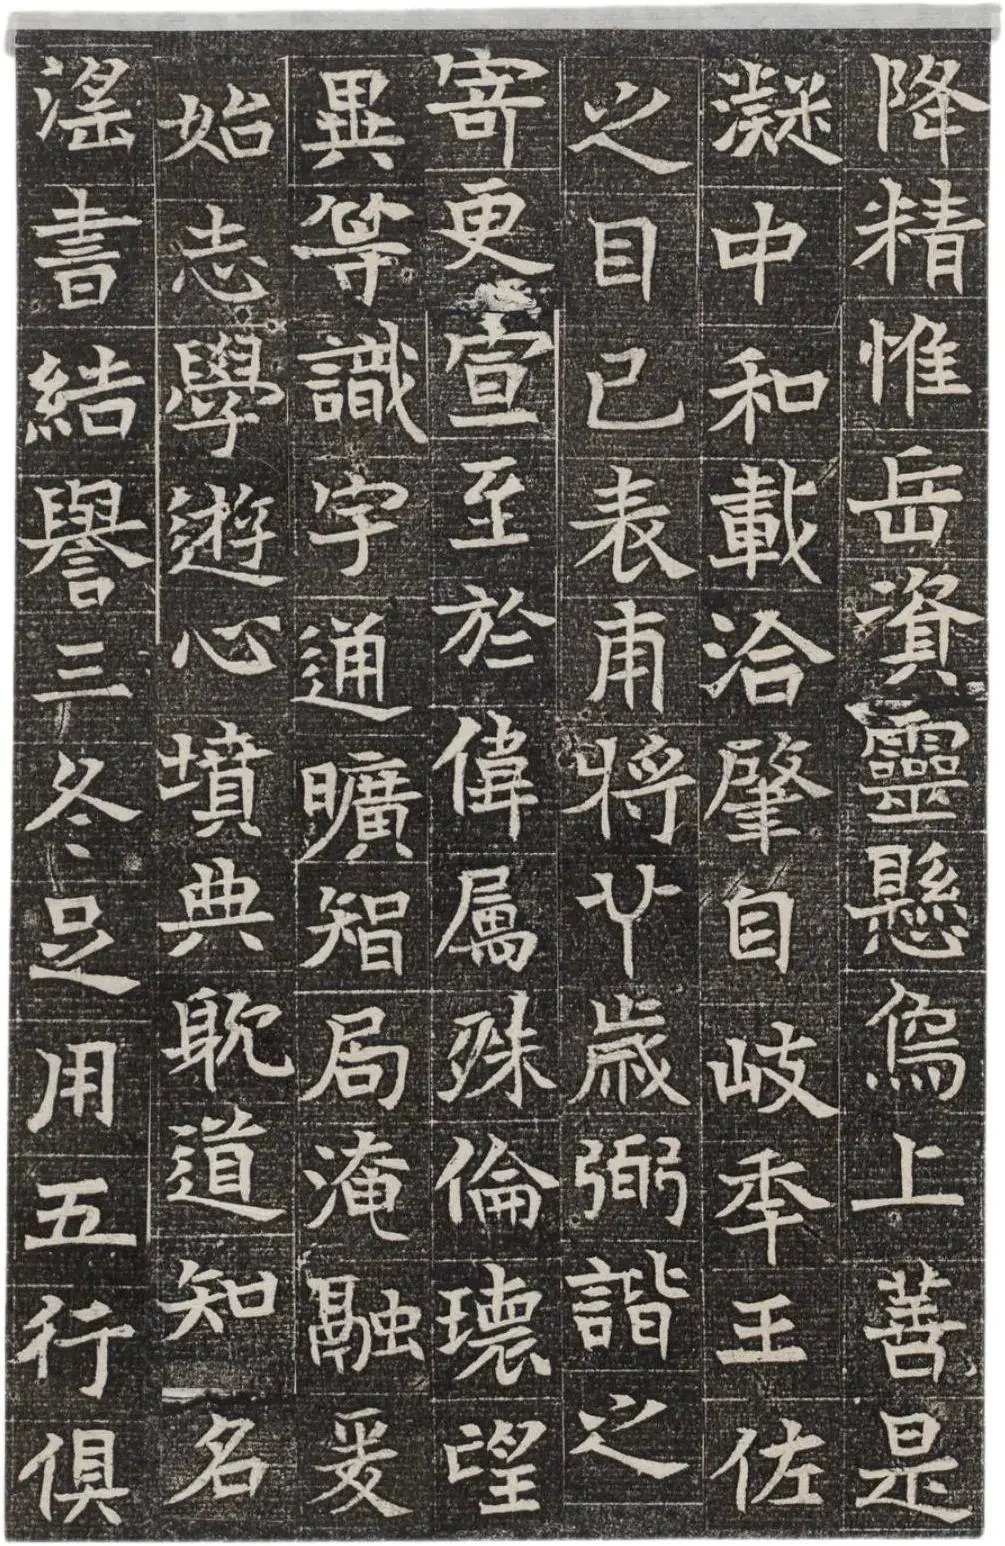 降精惟岳資靈懸烏上善是
凝中和載洽肇自岐秊王佐
之目已表甫將丱歲弼諧之
寄更宣至於偉屬殊倫瓌望
異等識宇通曠智局淹融爰
始志學遊心墳典耽道知名
滛書結譽三冬足用五行俱